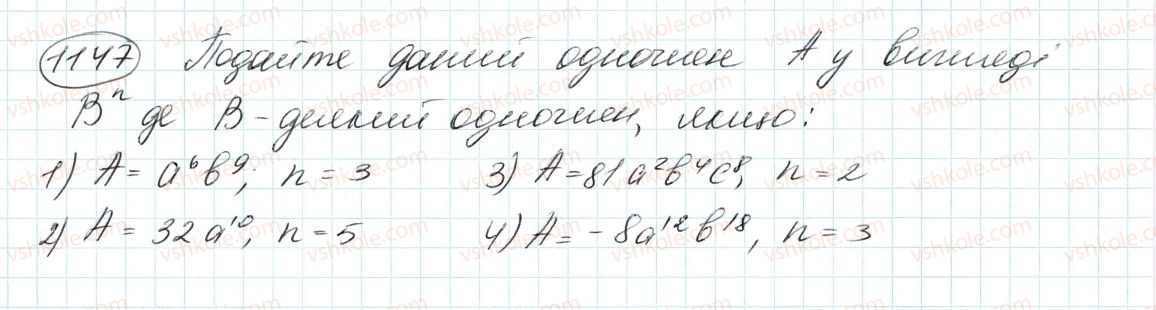 1147 Подайте даний одночлен A у вигляді
Bⁿ де B - деякий одночлен, якщо:
1) A = a⁶b⁹, n = 3 3) A = 81a²b⁴c⁸, n = 2
2) A = 32a¹⁰, n = 5 4) A = -8a¹²b¹⁸, n = 3